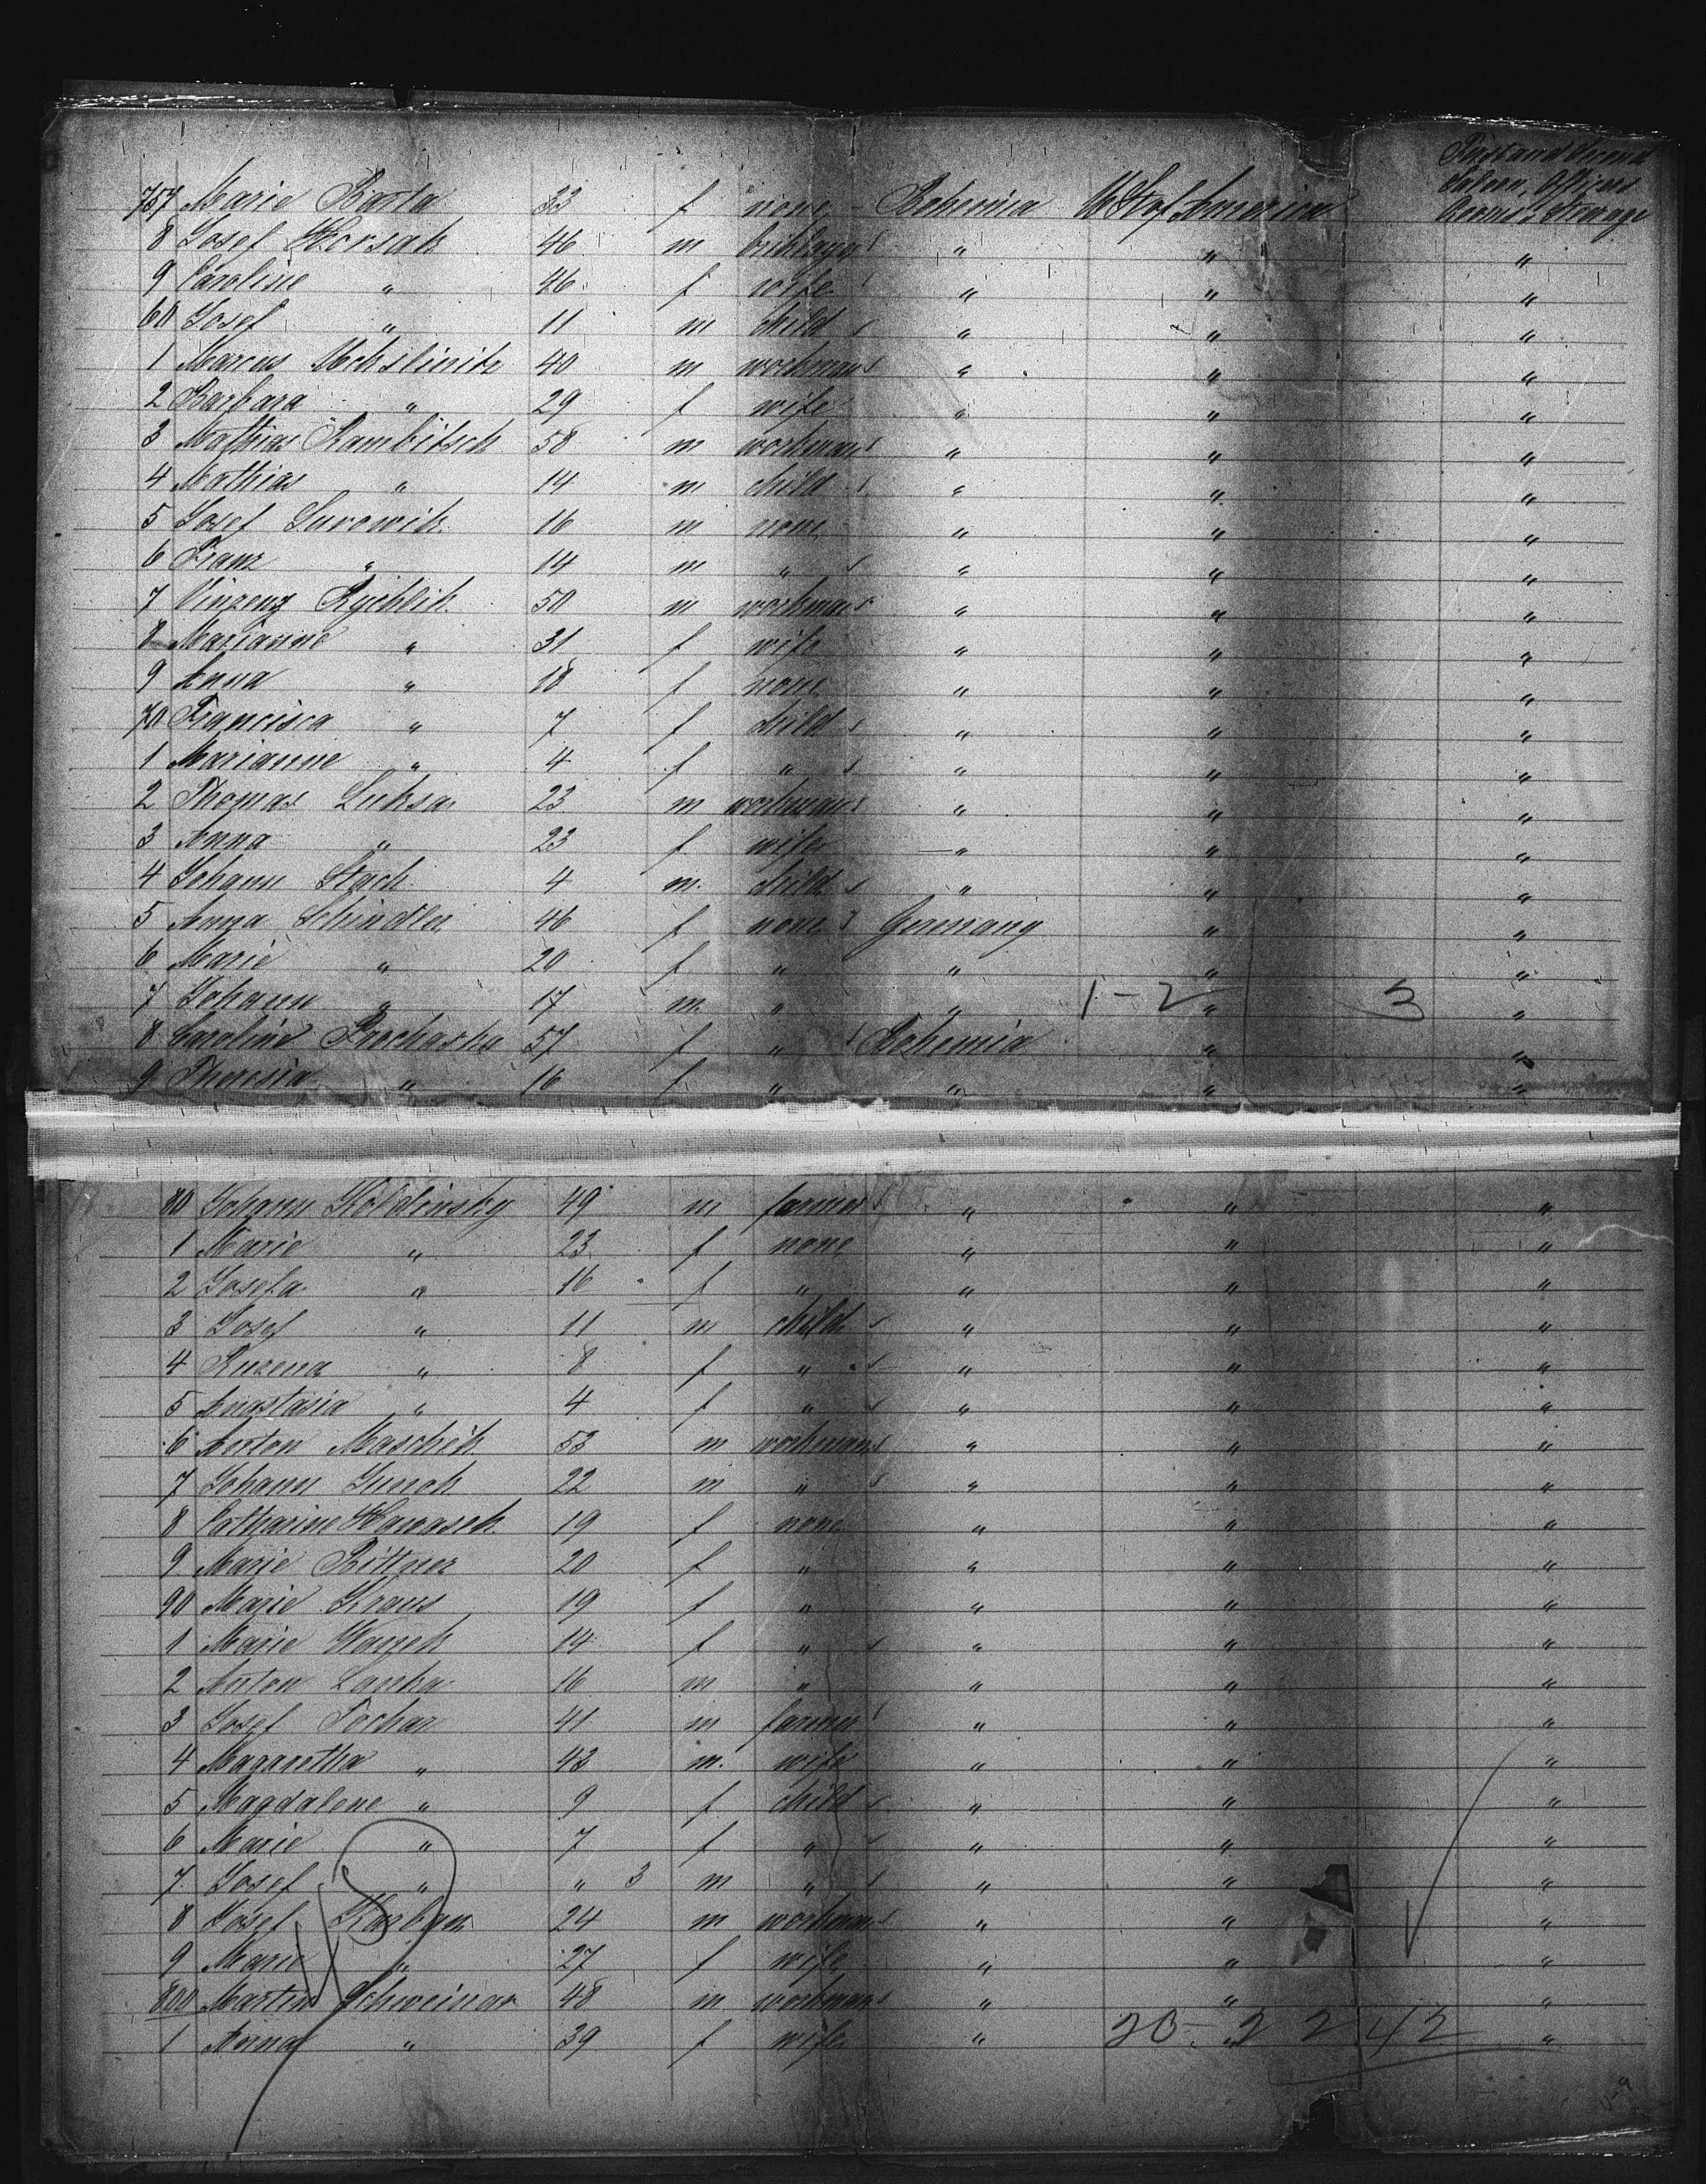 First and Second
Saloon, Officers
Rooms, Steerage
757 Marie Barta 33 f none Bohemia U St of America
8 Josef Horsak 46 m briklayer " " "
9 Caroline " 46 f wife " " "
60 Josef " 11 m child " " "
1 Marcus 40 m workman " " "
2 Barbara " 29 f wife " " "
3 Mathias Rambitsch 58 m workman " " "
4 Mathias " 14 m child " " "
5 Josef Surowik 16 m none " " "
6 Franz " 14 m " " " "
7 Vinzenz Rychlik 50 m workman " " "
8 Marianne " 31 f wife " " "
9 Anna " 18 f none " " "
70 Francisca " 7 f child " " "
1 Marianne " 4 f " " " "
2 Thomas Luksa 23 m workman " " "
3 Anna " 23 f wife " " "
4 Johann Stach 4 m child " " "
5 Anna Schindler 46 f none Germany " "
6 Marie " 20 f " " " "
7 Johann " 17 m " " 1-2 " 3 "
8 Caroline Prochaska 57 f " Bohemia " "
9 Theresia " 16 f " " " "
80 Johann Koldinsky 49 m farmer " " "
1 Marie " 23 f none " " "
2 Josefa " 16 f " " " "
3 Josef " 11 m child " " "
4 Ruzena " 8 f " " " "
5 Anastasia " 4 f " " " "
6 Anton Maschek 53 m workman " " "
7 Johann 22 m " " " "
8 Catharine Hawasch 19 f none " " "
9 Marie Bittner 20 f " " " "
90 Marie Kraus 19 f " " " "
1 Marie Hanek 14 f " " " "
2 Anton 16 m " " " "
3 Josef Pochar 41 m farmer " " "
4 Magaretha " 43 m wife " " "
5 Magdalene " 9 f child " " "
6 Marie " 7 f " " " "
7 Josef " " 3 m " " " "
8 Josef Korban 24 m workman " " "
9 Marie " 27 f wife " " "
800 Martin Schweinar 48 m workman " " "
1 Anna " 39 f wife " 20- 22 42 "